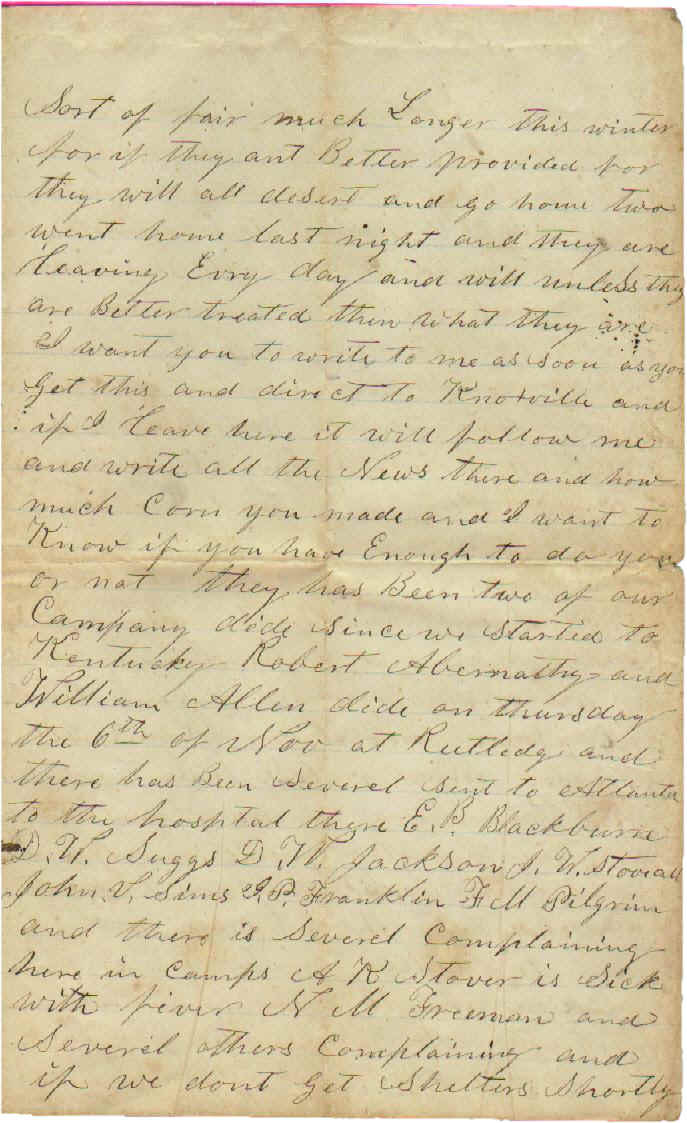 Sort of fair much Longer this winter
for if they ant Better provided for
they will all desert and go home two
went home last night and they are
Leaving Evry day and will unless they
are Better treated then what they are
I want you to write to me as soon as you
Get this and direct to Knoxville and
if I Leave here it will follow me
and write all the News there and how
much Corn you made and I want to
Know if you have Enough to do you
or not they has Been two of our
Company dide since we started to
Kentucky Robert Abernathy and
William Allen dide on thursday
the 6th of Nov at Rutledg and
there has Been Severel sent to Atlanta
to the hosptal there E. P. Blackburn
D. W. Suggs D. W. Jackson J. W. Stovall
John V. Sims I. P. Franklin F M Pilgrim
and there is Severel Complaining
here in Camps A K Stover is Sick
with fever N M Freeman and
Severel others Complaining and
if we dont Get Shelters Shortly